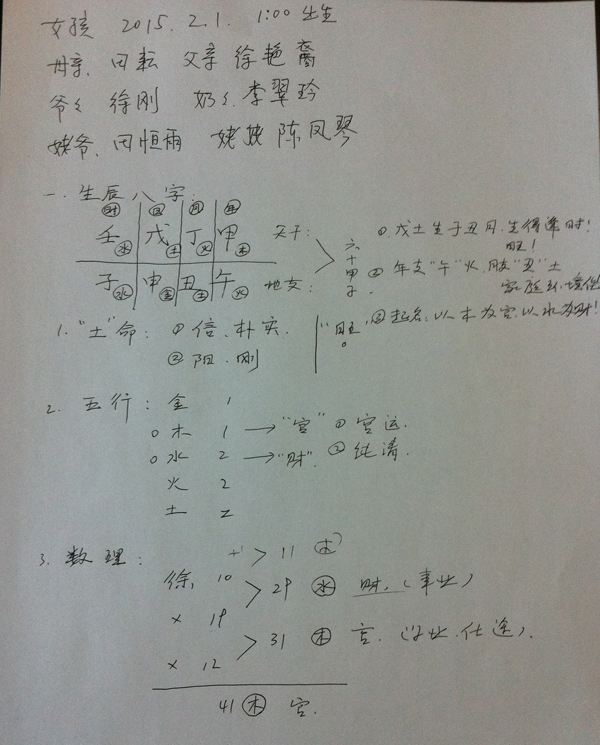 女孩 2015.2.1. 1:00 出生
母亲. 田耘 父亲 徐艳裔
爷々 徐刚 奶々. 李翠玲
姥爷. 田恒雨 姥姥 陈凤琴
一. 生辰八字:
时 日 月 年
壬水 戊土 丁火 甲木 天干:
子水 申金 丑土 午火 地支:
六十甲子.
① 戊土生于丑月. 生得逢时! 旺!
② 年支"午"火. 月支"丑"土
家庭环境优
③ 起名: 以木为官. 以水为财!
1. "土"命: ① 信. 朴实. "旺"
② 阳. 刚
2. 五行: 金 1
木 1 → "官" ① 官运.
水 2 → "财". ② 纯清.
火 2
土 2
3. 数理: +1 > 11 木
徐, 10 > 29 水 财. (事业)
× 19
> 31 木 官. (学业. 仕途).
× 12
41 木 官.